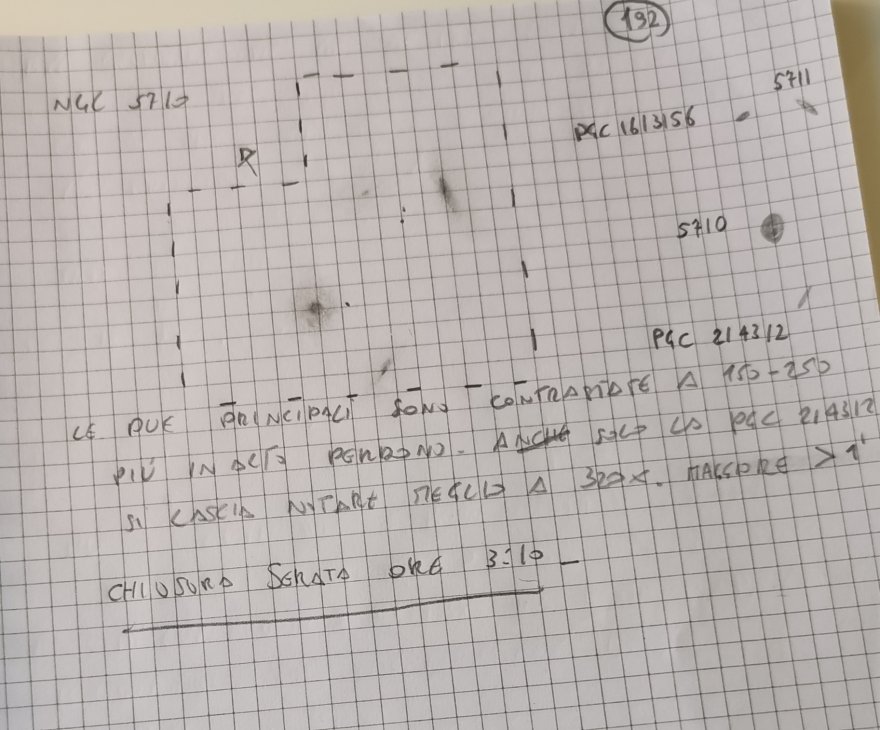 192
NGC 5710
5711
PGC 1613156
R
5710
PGC 214312
LE DUE PRINCIPALI SONO CONTRASTATE A 150-250
PIÙ IN ALTO PERDONO. ANCHE SOLO LA PGC 214312
SI LASCIA NOTARE MEGLIO A 320X. MAGGIORE > 1'
CHIUSURA SERATA ORE 3:10